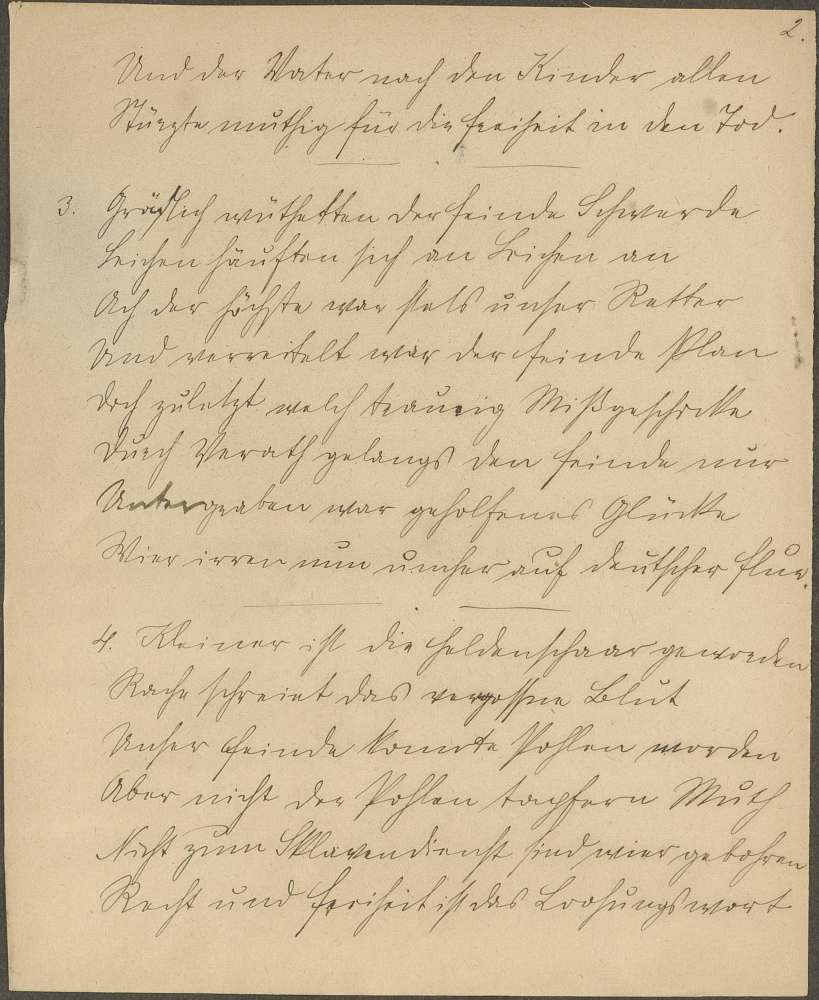 2.
Und der Vater nach den Kinder allen
Stürzte muthig für die Freiheit in den Tod.
3. Gräßlich wütheten der Feinde Schwerde
Leichen häuften sich an Leichen an
Ach der höchste war stets unser Retter
Und vereitelt war der Feinde Plan
Doch zuletzt welch traurig Mißgeschicke
Durch Verath gelangs den Feinde nur
Untergraben war geholfenes Glücke
Wier irren nun umher auf deutscher Flur.
4. Kleiner ist die Heldenschaar geworden
Rache schreiet das vergossne Blut
Unser Feinde konnte Pohlen morden
Aber nicht der Pohlen tapfern Muth
Nicht zum Sklavendienst sind wier gebohren
Recht und Freiheit ist das Loosungswort